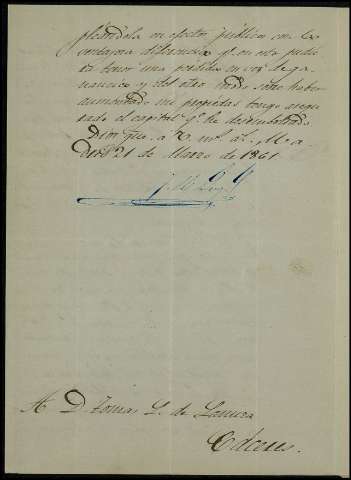 pleándola en efectos públicos con la
ventajosa diferencia qe. en esto pudie
ra tener una pérdida en vez de ga-
nancia y del otro modo sobre haber
aumentado mi propiedad tengo asegu
rado el capital qe. he desembolsado
Dios gue. a V. ms. as. Ma
drid 21 de Marzo de 1861
A D. Tomas L. de